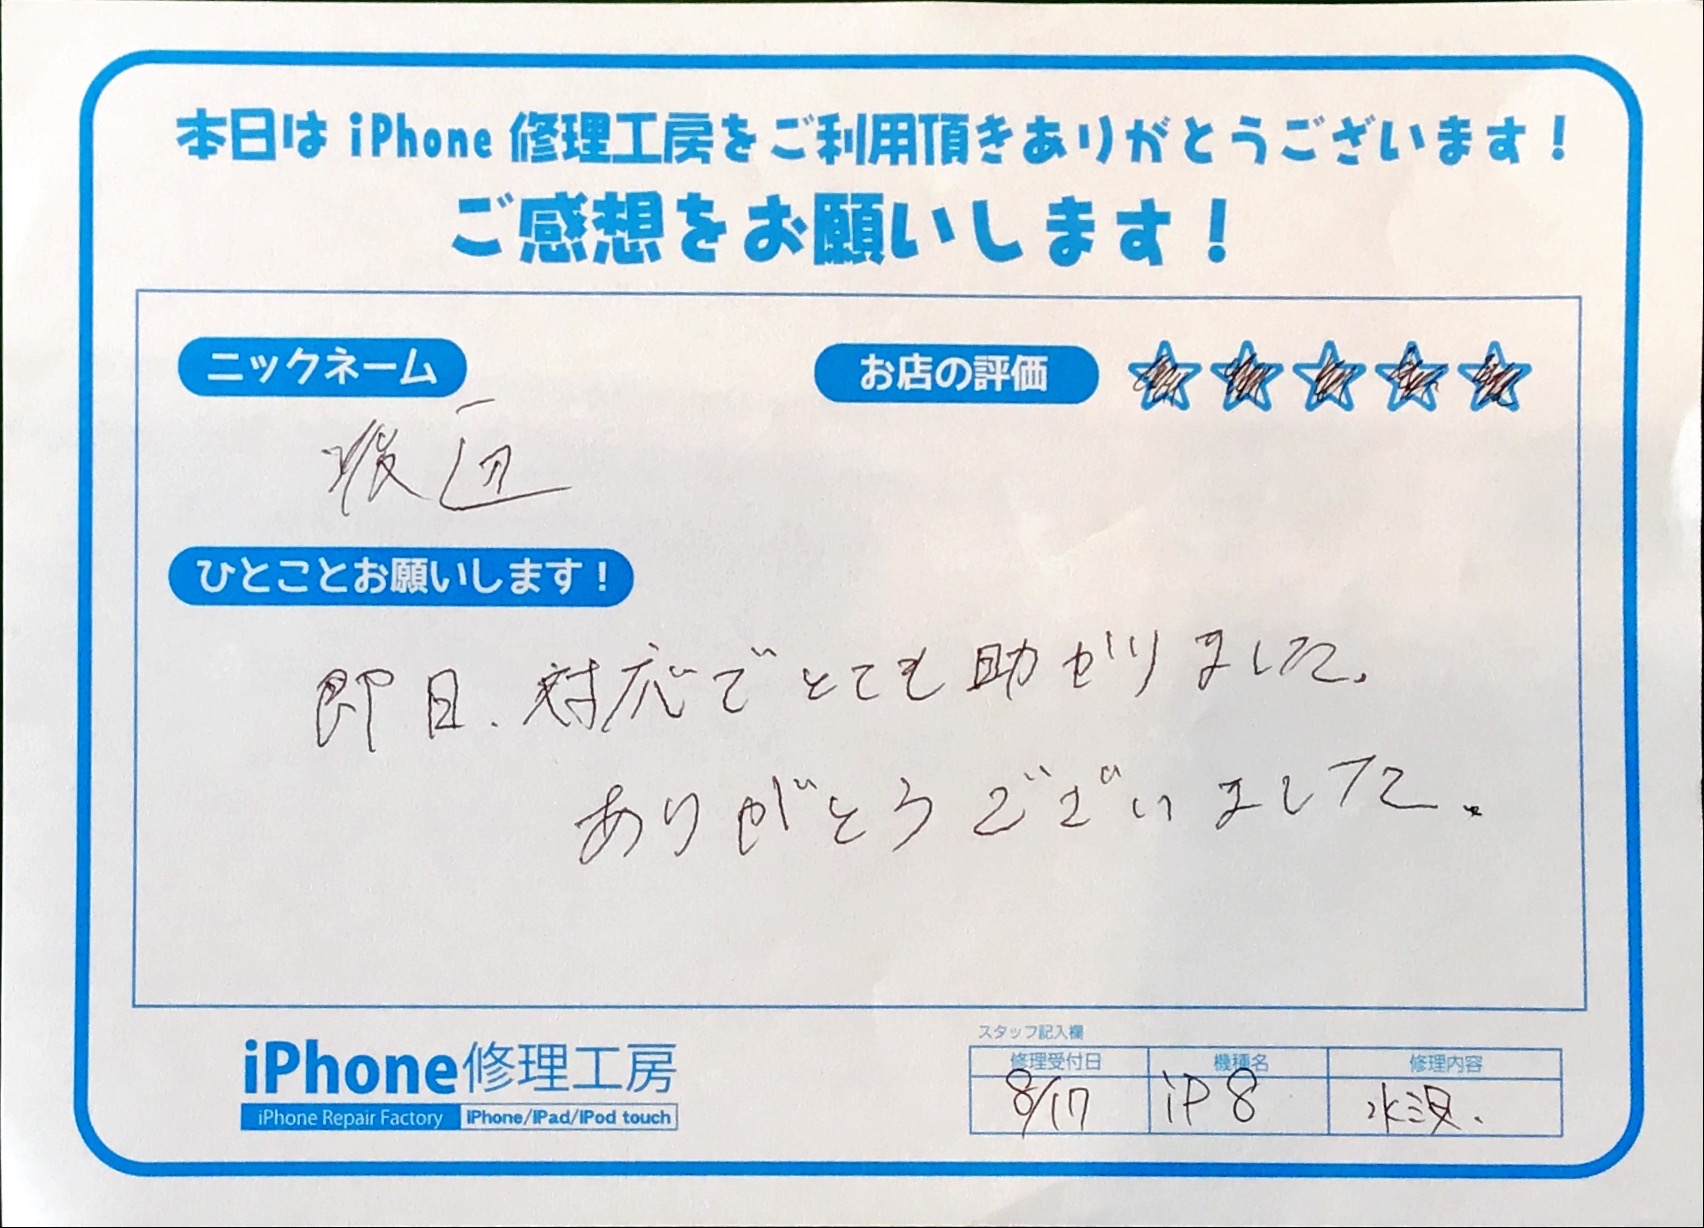 本日は iPhone 修理工房をご利用頂きありがとうございます！
ご感想をお願いします！
ニックネーム
お店の評価
渡辺
ひとことお願いします！
即日、対応でとても助かりました。
ありがとうございました。
iPhone修理工房
iPhone Repair Factory iPhone/iPad/iPod touch
スタッフ記入欄
修理受付日 機種名 修理内容
8/17 iP8 水没.